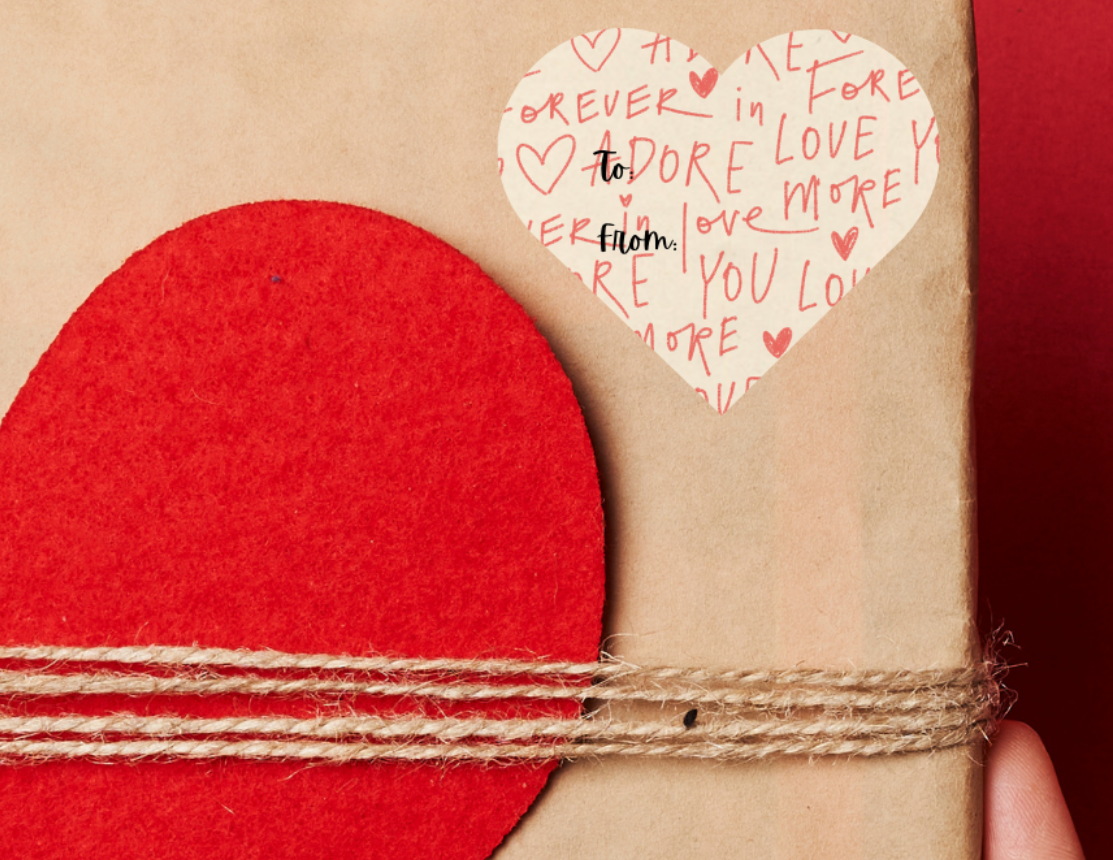 FOREVER in FORE
ADORE LOVE Y
To:
VER in love MORE
From:
ORE YOU LOV
MORE